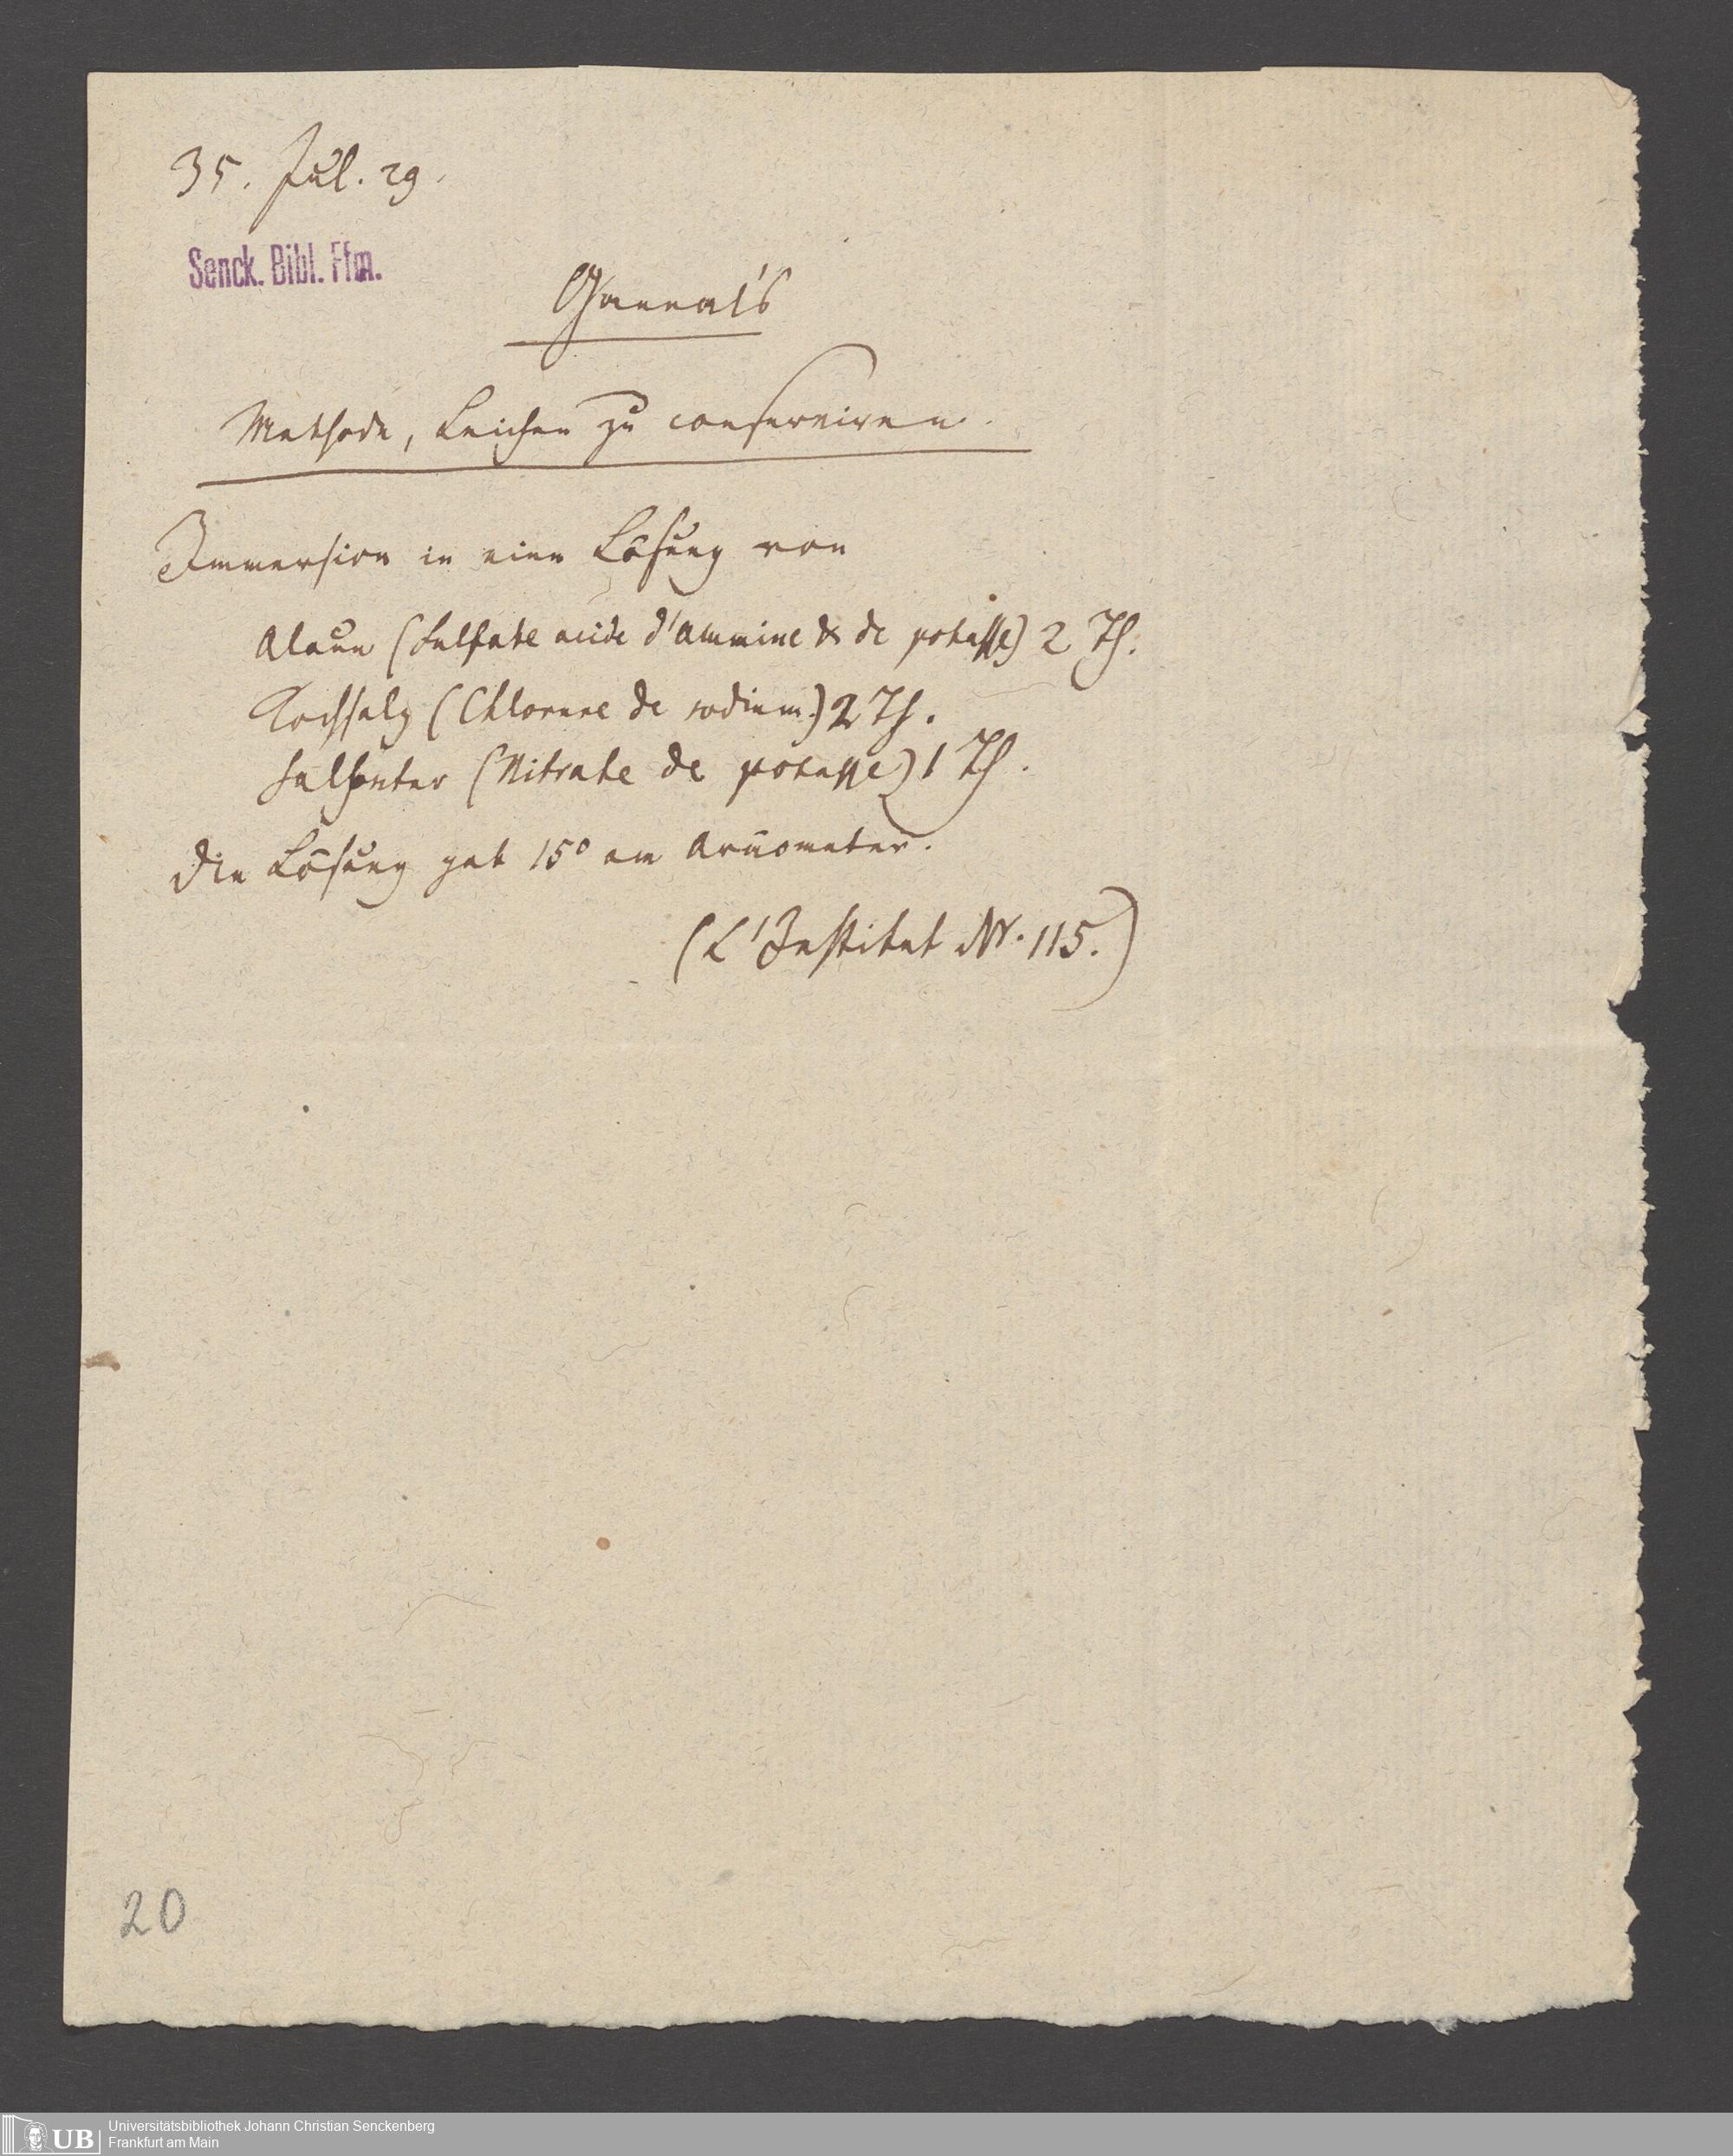 35. Jul. 29.
Senck. Bibl. Ffm.
Gannal's
Methode, Leichen zu conserviren.
Immersion in eine Lösung von
Alaun (Sulfate acide d'Alumine & de potasse) 2 Th.
Kochsalz (Chlorure de sodium.) 2 Th.
Salpeter (Nitrate de potasse) 1 Th.
Die Lösung gab 15° am Aräometer.
(L'Institut Nr. 115.)
20
UB
Universitätsbibliothek Johann Christian Senckenberg
Frankfurt am Main